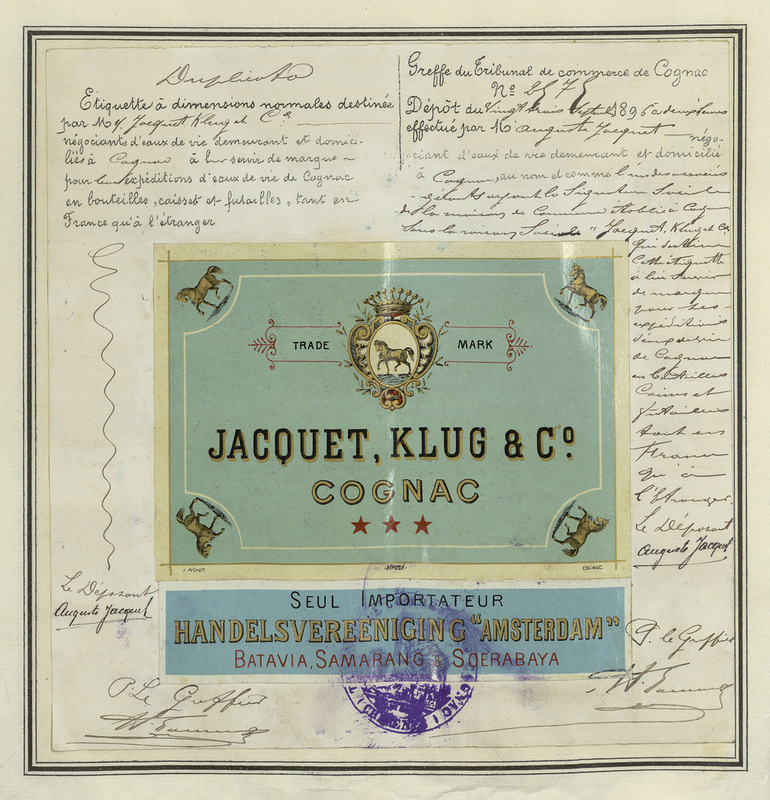 Duplicata
Etiquette à dimensions normales destinée
par MM. Jacquet Klug et Cie
négociants d'eaux de vie demeurant et domici-
liés à Cognac à leur servir de marque
pour leurs expéditions d'eaux de vie de Cognac
en bouteilles, caisses et futailles, tant en
France qu'à l'étranger
Greffe du Tribunal de commerce de Cognac
No 2575
Dépôt du Vingt trois Septembre 1896
effectué par M Auguste Jacquet négo-
ciant d'eaux de vie demeurant et domicilié
à Cognac, au nom et comme l'un des associés
gérants ayant la Signature Sociale
de la maison de Commerce établie à Cognac
sous la raison Sociale "Jacquet, Klug et Co
qui destine
Cette étiquette
à lui servir
de marque
pour ses
expéditions
d'eaux de vie
de Cognac
en bouteilles
Caisses et
futailles
tant en
France
qu'à
l'Etranger.
Le Déposant
Auguste Jacquet
TRADE MARK
JACQUET, KLUG & Co
COGNAC
J. PICHOT. -DÉPOSÉ- COGNAC.
SEUL IMPORTATEUR
HANDELSVEREENIGING "AMSTERDAM"
BATAVIA, SAMARANG & SOERABAYA
Le Déposant
Auguste Jacquet
P. Le Greffier
P. le Greffier